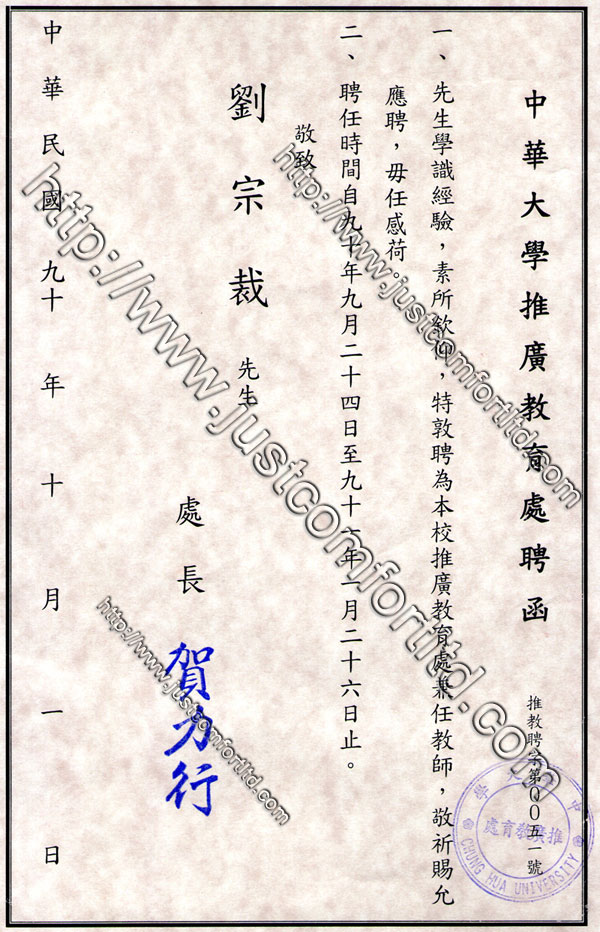 中華大學推廣教育處聘函
推教聘字第00五一號
一、先生學識經驗，素所欽仰，特敦聘為本校推廣教育處兼任教師，敬祈賜允
應聘，毋任感荷。
二、聘任時間自九十年九月二十四日至九十一年一月二十六日止。
敬致
劉宗裁 先生
處長 賀力行
中華民國九十年十月一日
推廣教育處
CHUNG HUA UNIVERSITY
http://www.justcomfortltd.com
http://www.justcomfortltd.com
http://www.justcomfortltd.com